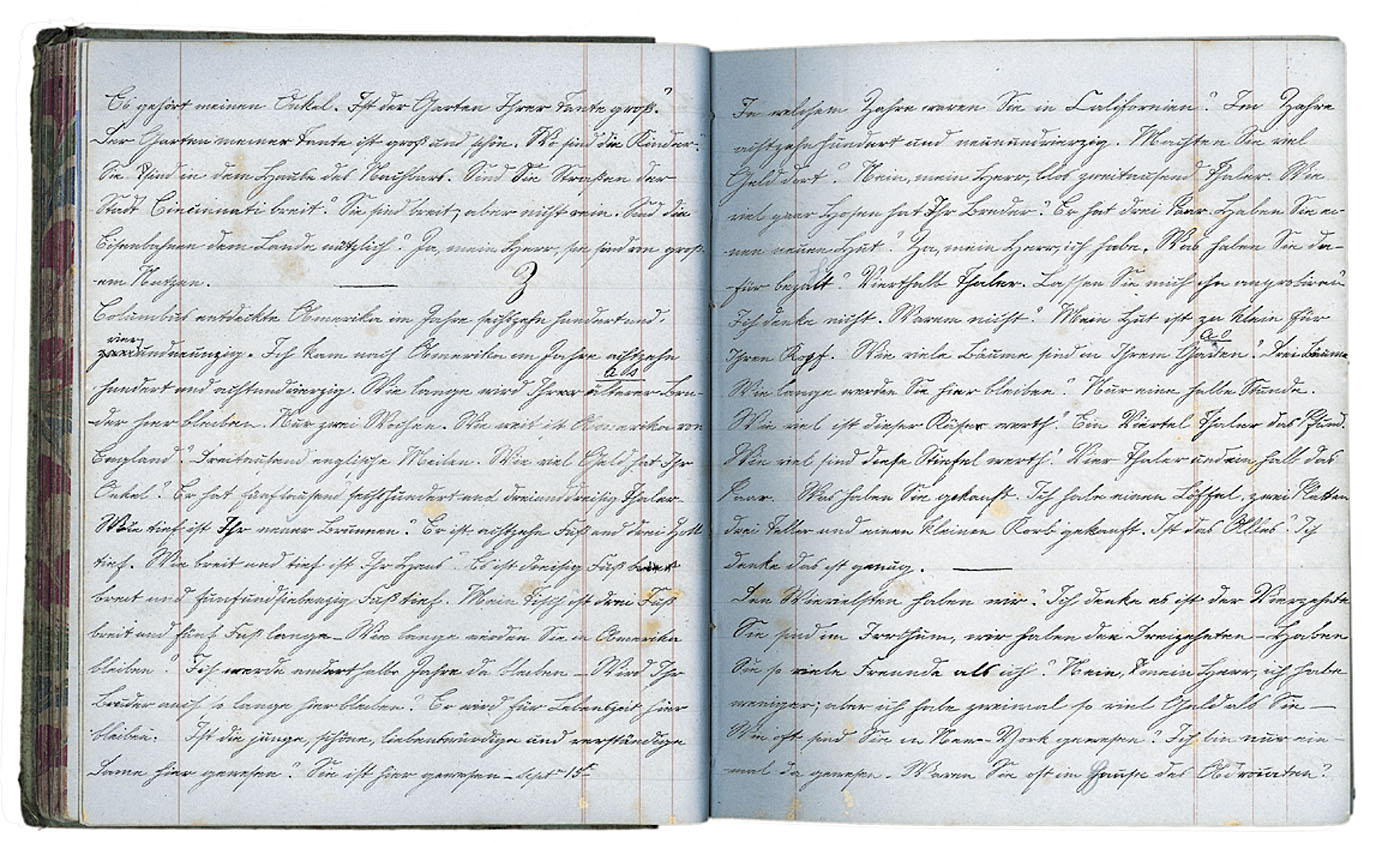 Es gehört meinem Onkel. Ist der Garten Ihrer Tante groß?
Der Garten meiner Tante ist groß und schön. Wo sind die Kinder?
Sie sind in dem Hause des Nachbars. Sind die Straßen der
Stadt Cincinnati breit? Sie sind breit, aber nicht rein. Sind die
Eisenbahnen dem Lande nützlich? Ja, mein Herr, sie sind von groß-
em Nutzen.
Columbus entdeckte Amerika im Jahre sechszehn hundert und
vier
undneunzig. Ich kam nach Amerika im Jahre achtzehn
hundert und achtundvierzig. Wie lange wird Ihrer älterer Bru-
der hier bleiben. Nur zwei Wochen. Wie weit ist Amerika von
England? Dreitausend englische Meilen. Wie viel Geld hat Ihr
Onkel? Er hat fünftausend sechshundert und dreiunddreisig Thaler.
Wie tief ist Ihr neuer Brunnen? Er ist achtzehn Fuß und drei Zoll
tief. Wie breit und tief ist Ihr Haus? Es ist dreisig Fuß
breit und fünfundsiebenzig Fuß tief. Mein Tisch ist drei Fuß
breit und fünf Fuß lange – Wie lange werden Sie in Amerika
bleiben? Ich werde anderthalbe Jahre da bleiben – Wird Ihr
Bruder auch so lange hier bleiben? Er wird für Lebenszeit hier
bleiben. Ist die junge, schöne, liebenswürdige und verständige
Dame hier gewesen? Sie ist hier gewesen – Sept 15
In welchem Jahre waren Sie in Californien? Im Jahre
achtzehn hundert und neunundvierzig. Machten Sie viel
Geld dort? Nein, mein Herr, blos zweitausend Thaler. Wie
viel paar Hosen hat Ihr Bruder? Er hat drei Paar. Haben Sie ei-
nen neuen Hut? Ja, mein Herr, ich habe. Was haben Sie da-
für bezalt? Vierthalb Thaler. Lassen Sie mich ihn anprobiren?
Ich denke nicht. Warum nicht? Mein Hut ist zu klein für
Ihren Kopf. Wie viele Bäume sind in Ihrem Garten? Drei Bäume
Wie lange werden Sie hier bleiben? Nur eine halbe Stunde.
Wie viel ist dieser Käse werth? Ein Viertel Thaler das Pfund.
Wie viel sind diese Stiefel werth? Vier Thaler und ein halb das
Paar. Was haben Sie gekauft. Ich habe einen Löffel, zwei Platten
drei Teller und einen kleinen Korb gekauft. Ist das Alles? Ich
denke das ist genug.
Den Wievielsten haben wir? Ich denke es ist der Vierzehnte
Sie sind im Irrthum, wir haben den Dreizehnten – Haben
Sie so viele Freunde als ich? Nein, mein Herr, ich habe
weniger; aber ich habe zweimal so viel Geld als Sie –
Wie oft sind Sie in New-York gewesen? Ich bin nur ein-
mal da gewesen. Waren Sie oft im Hause des Advocaten?